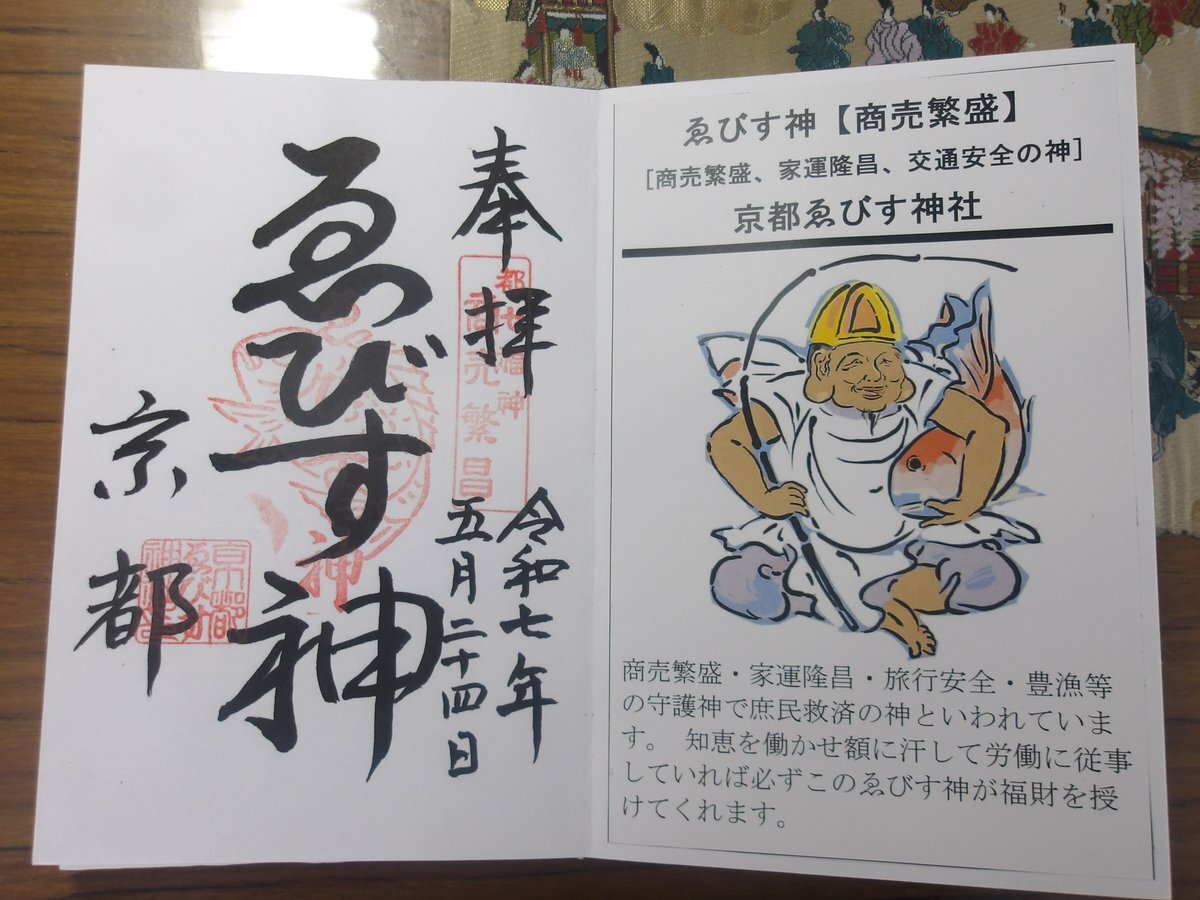 ゑびす神【商売繁盛】
[商売繁盛、家運隆昌、交通安全の神]
京都ゑびす神社
商売繁盛・家運隆昌・旅行安全・豊漁等
の守護神で庶民救済の神といわれていま
す。 知恵を働かせ額に汗して労働に従事
していれば必ずこのゑびす神が福財を授
けてくれます。
奉拝
都七福神
商売繁昌
令和七年
五月二十四日
ゑびす神
京都